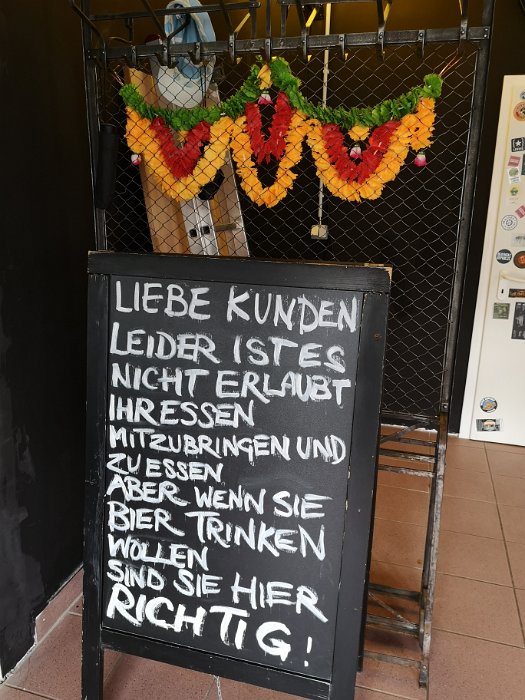 LIEBE KUNDEN
LEIDER IST ES
NICHT ERLAUBT
IHR ESSEN
MITZUBRINGEN UND
ZU ESSEN
ABER WENN SIE
BIER TRINKEN
WOLLEN
SIND SIE HIER
RICHTIG!